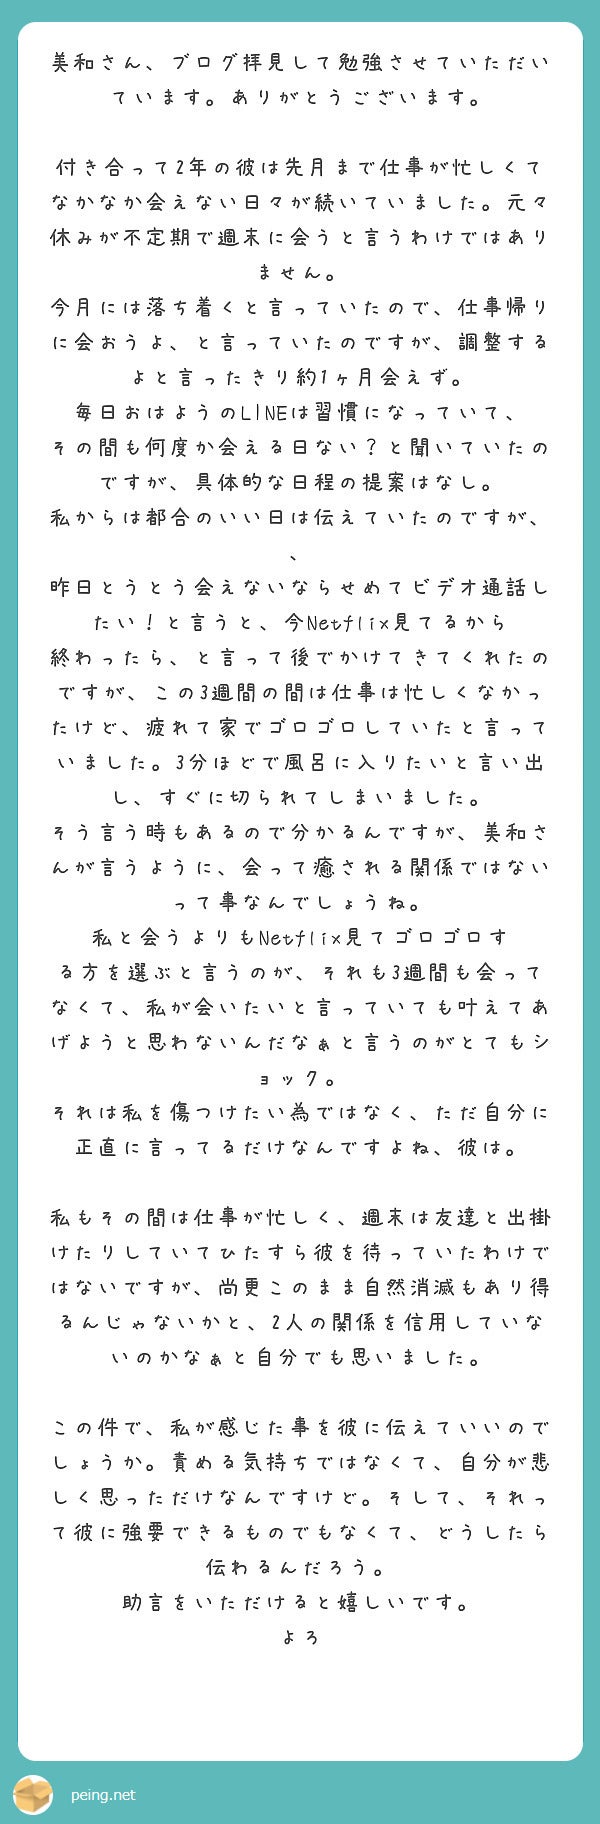 美和さん、ブログ拝見して勉強させていただい
ています。ありがとうございます。
付き合って2年の彼は先月まで仕事が忙しくて
なかなか会えない日々が続いていました。元々
休みが不定期で週末に会うと言うわけではあり
ません。
今月には落ち着くと言っていたので、仕事帰り
に会おうよ、と言っていたのですが、調整する
よと言ったきり約1ヶ月会えず。
毎日おはようのLINEは習慣になっていて、
その間も何度か会える日ない？と聞いていたの
ですが、具体的な日程の提案はなし。
私からは都合のいい日は伝えていたのですが、
、
昨日とうとう会えないならせめてビデオ通話し
たい！と言うと、今Netflix見てるから
終わったら、と言って後でかけてきてくれたの
ですが、この3週間の間は仕事は忙しくなかっ
たけど、疲れて家でゴロゴロしていたと言って
いました。3分ほどで風呂に入りたいと言い出
し、すぐに切られてしまいました。
そう言う時もあるので分かるんですが、美和さ
んが言うように、会って癒される関係ではない
って事なんでしょうね。
私と会うよりもNetflix見てゴロゴロす
る方を選ぶと言うのが、それも3週間も会って
なくて、私が会いたいと言っていても叶えてあ
げようと思わないんだなぁと言うのがとてもシ
ョック。
それは私を傷つけたい為ではなく、ただ自分に
正直に言ってるだけなんですよね、彼は。
私もその間は仕事が忙しく、週末は友達と出掛
けたりしていてひたすら彼を待っていたわけで
はないですが、尚更このまま自然消滅もあり得
るんじゃないかと、2人の関係を信用していな
いのかなぁと自分でも思いました。
この件で、私が感じた事を彼に伝えていいので
しょうか。責める気持ちではなくて、自分が悲
しく思っただけなんですけど。そして、それっ
て彼に強要できるものでもなくて、どうしたら
伝わるんだろう。
助言をいただけると嬉しいです。
よろ
peing.net